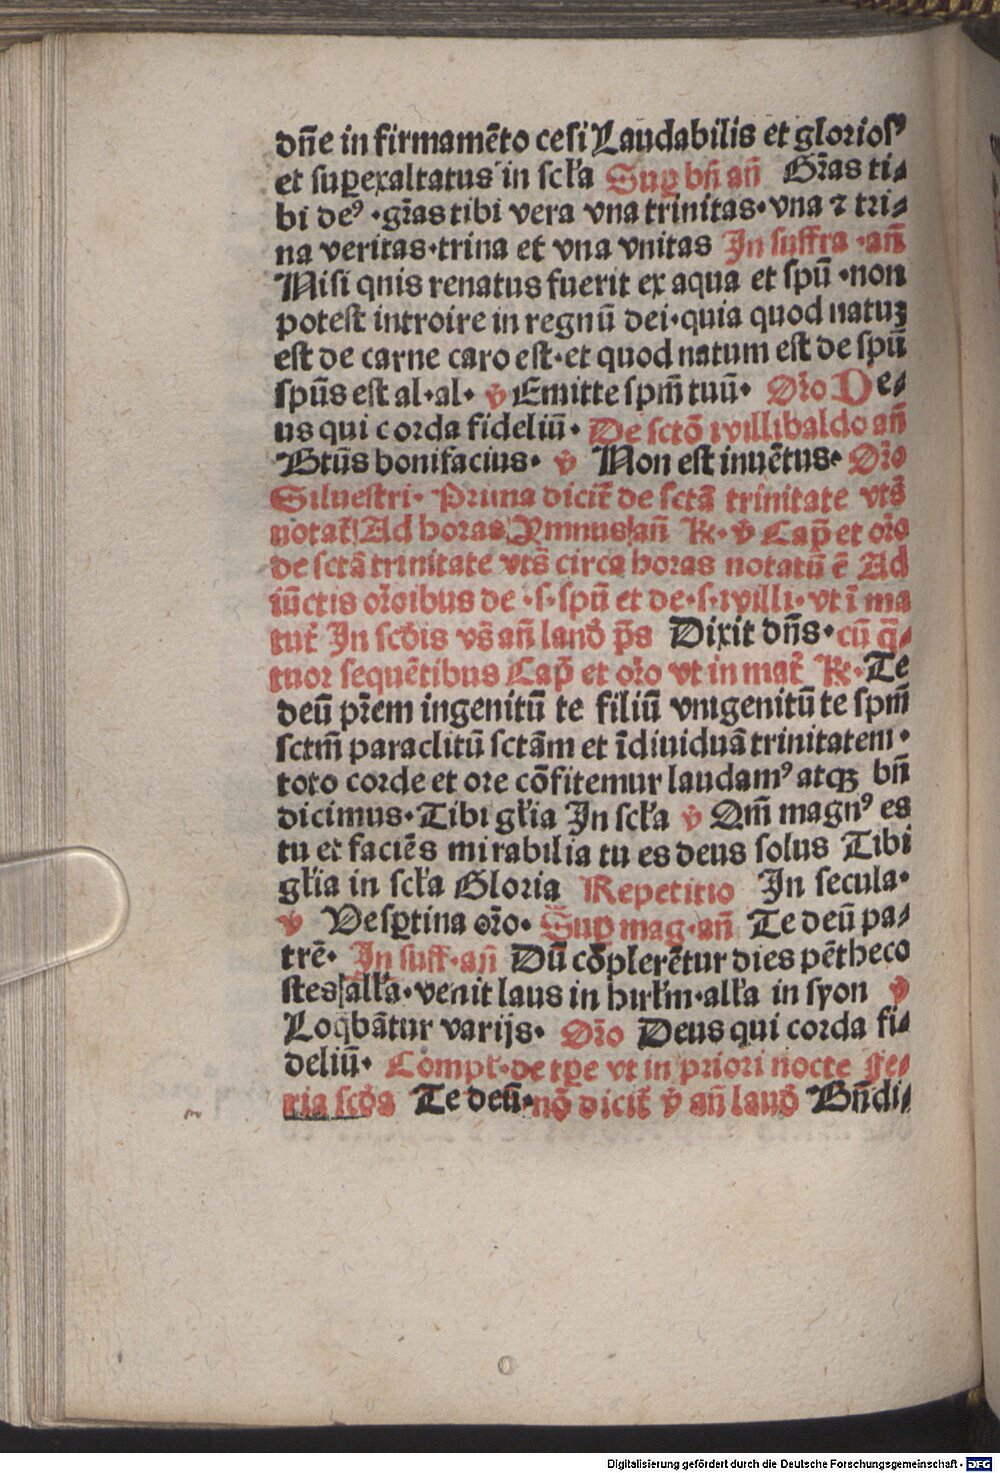 dn̄e in firmamēto celi Laudabilis et glorios⁹
et suꝑexaltatus in scl̄a Suꝑ bn̄ an̄ Gr̄as ti⸗
bi de⁹ ·gr̄as tibi vera vna trinitas·vna ⁊ tri⸗
na veritas·trina et vna vnitas In suffra ·an̄
Nisi quis renatus fuerit ex aqua et spū ·non
potest introire in regnū dei·quia quod natuꝫ
est de carne caro est·et quod natum est de spū
spūs est al·al· ℣ Emitte spm̄ tuū· Or̄o De⸗
us qui corda fideliū· De sctō willibaldo an̄
Btūs bonifacius· ℣ Non est inuētus· Or̄o
Siluestri· Prima dicit̄ de sctā trinitate vts̄
notat̄ Ad horas Ymnus an̄ ℟· ℣ Cap̄ et or̄o
de sctā trinitate vts̄ circa horas notatū ē Ad
iūctis or̄oibus de ·s·spū et de·s·willi·vt ī ma
tut̄ In scd̄is vs̄ an̄ laud̄ p̄s Dixit dn̄s·cū q̄⸗
tuor sequētibus Cap̄ et or̄o vt in mat̄ ℟·Te
deū pr̄em ingenitū te filiū vnigenitū te spm̄
sctm̄ paraclitū sctām et īdiuiduā trinitatem·
toto corde et ore cōfitemur laudam⁹ atqꝫ bn̄
dicimus·Tibi gl̄ia In scl̄a ℣ Qm̄ magn⁹ es
tu et faciēs mirabilia tu es deus solus Tibi
gl̄ia in scl̄a Gloria Repetitio In secula·
℣ Vesꝑtina or̄o· Suꝑ mag·an̄ Te deū pa⸗
trē· In suff·an̄ Dū cōplerētur dies pētheco
stes all̄a·venit laus in hirl̄m·all̄a in syon ℣
Loqbātur varijs· Or̄o Deus qui corda fi⸗
deliū· Compl̄·de tꝑe vt in priori nocte Fe⸗
ria scd̄a Te deū·nō dicit̄ ℣ an̄ laud̄ Bn̄di⸗
Digitalisierung gefördert durch die Deutsche Forschungsgemeinschaft - DFG